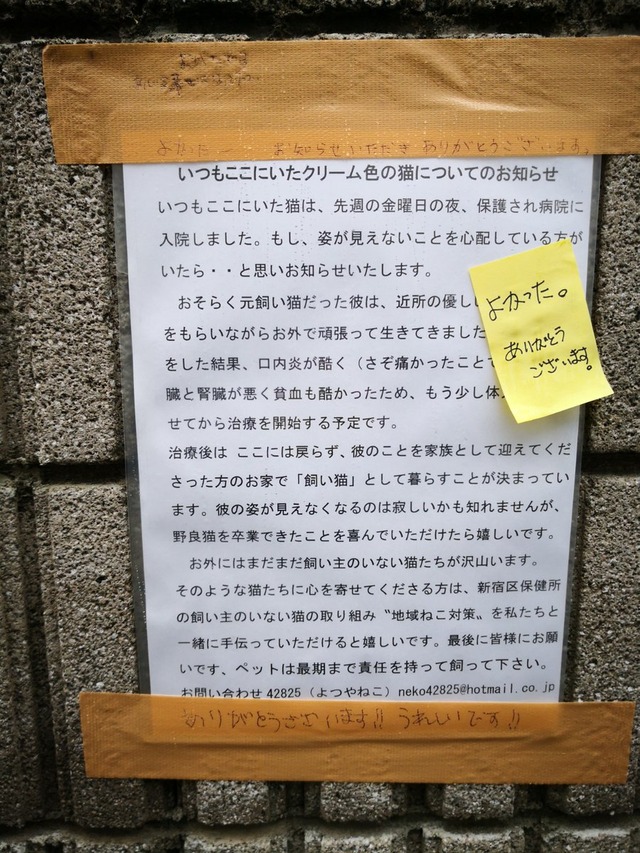 よかった お知らせいただき ありがとうございます。
いつもここにいたクリーム色の猫についてのお知らせ
いつもここにいた猫は、先週の金曜日の夜、保護され病院に
入院しました。もし、姿が見えないことを心配している方が
いたら・・と思いお知らせいたします。
おそらく元飼い猫だった彼は、近所の優し
をもらいながらお外で頑張って生きてきました
をした結果、口内炎が酷く（さぞ痛かったこと
臓と腎臓が悪く貧血も酷かったため、もう少し体
せてから治療を開始する予定です。
治療後は ここには戻らず、彼のことを家族として迎えてくだ
さった方のお家で「飼い猫」として暮らすことが決まってい
ます。彼の姿が見えなくなるのは寂しいかも知れませんが、
野良猫を卒業できたことを喜んでいただけたら嬉しいです。
お外にはまだまだ飼い主のいない猫たちが沢山います。
そのような猫たちに心を寄せてくださる方は、新宿区保健所
の飼い主のいない猫の取り組み〝地域ねこ対策〟を私たちと
一緒に手伝っていただけると嬉しいです。最後に皆様にお願
いです、ペットは最期まで責任を持って飼って下さい。
お問い合わせ 42825（よつやねこ）neko42825@hotmail.co.jp
よかった。
ありがとう
ございます。
ありがとうございます!! うれしいです!!